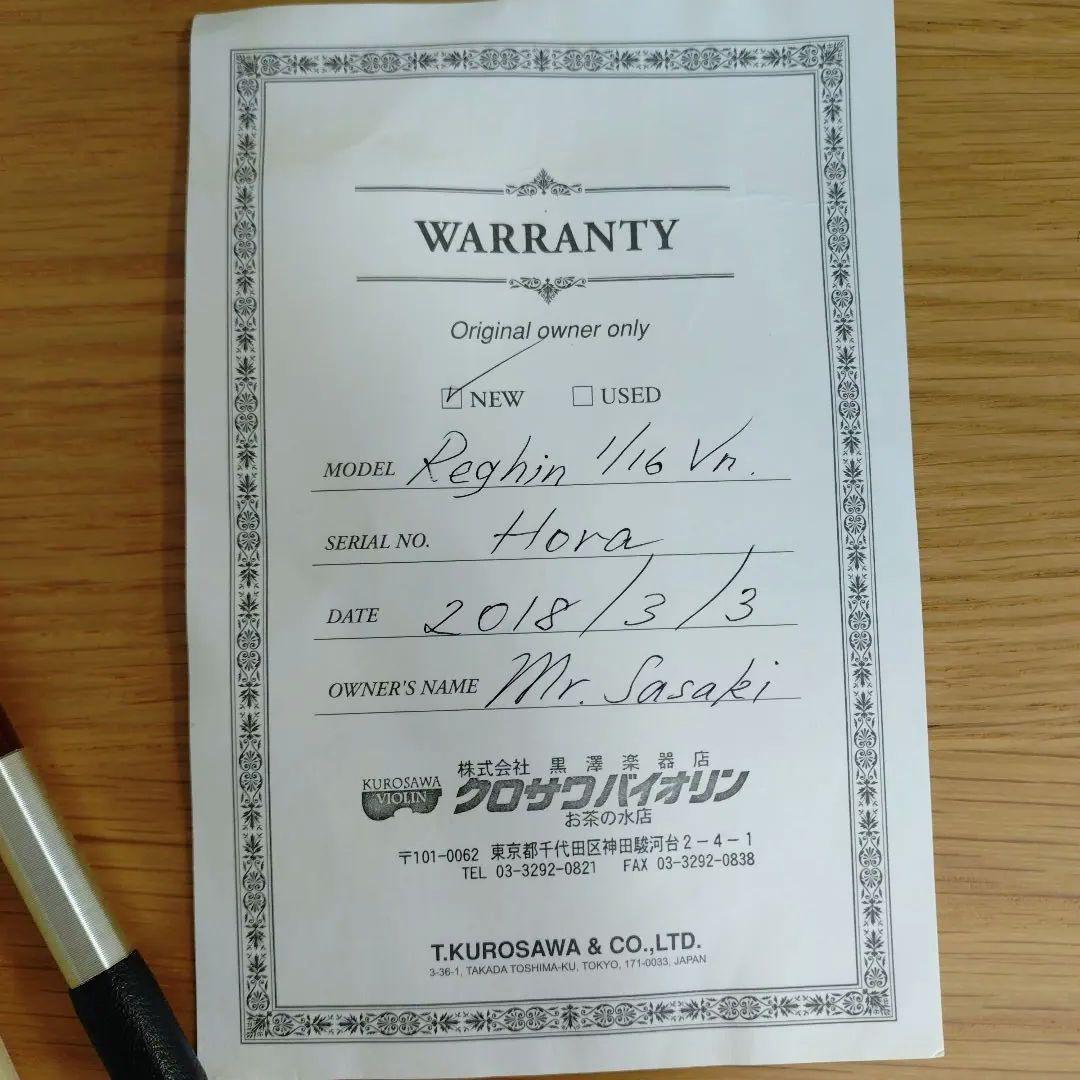 WARRANTY
Original owner only
NEW USED
MODEL Reghin 1/16 Vn.
SERIAL NO. Hora
DATE 2018/3/3
OWNER'S NAME Mr. Sasaki
株式会社 黒澤楽器店
KUROSAWA VIOLIN クロサワバイオリン
お茶の水店
〒101-0062 東京都千代田区神田駿河台2-4-1
TEL 03-3292-0821 FAX 03-3292-0838
T.KUROSAWA & CO.,LTD.
3-36-1, TAKADA TOSHIMA-KU, TOKYO, 171-0033, JAPAN